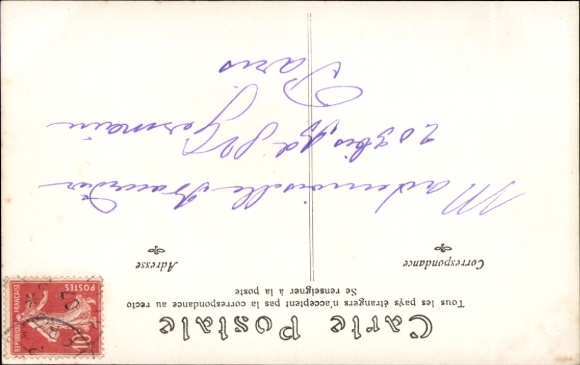 Carte Postale
Tous les pays étrangers n'acceptent pas la correspondance au recto
Se renseigner à la poste
Correspondance
Adresse
Mademoiselle
203 bis Bd St Germain
Paris
REPUBLIQUE FRANÇAISE
POSTES
10